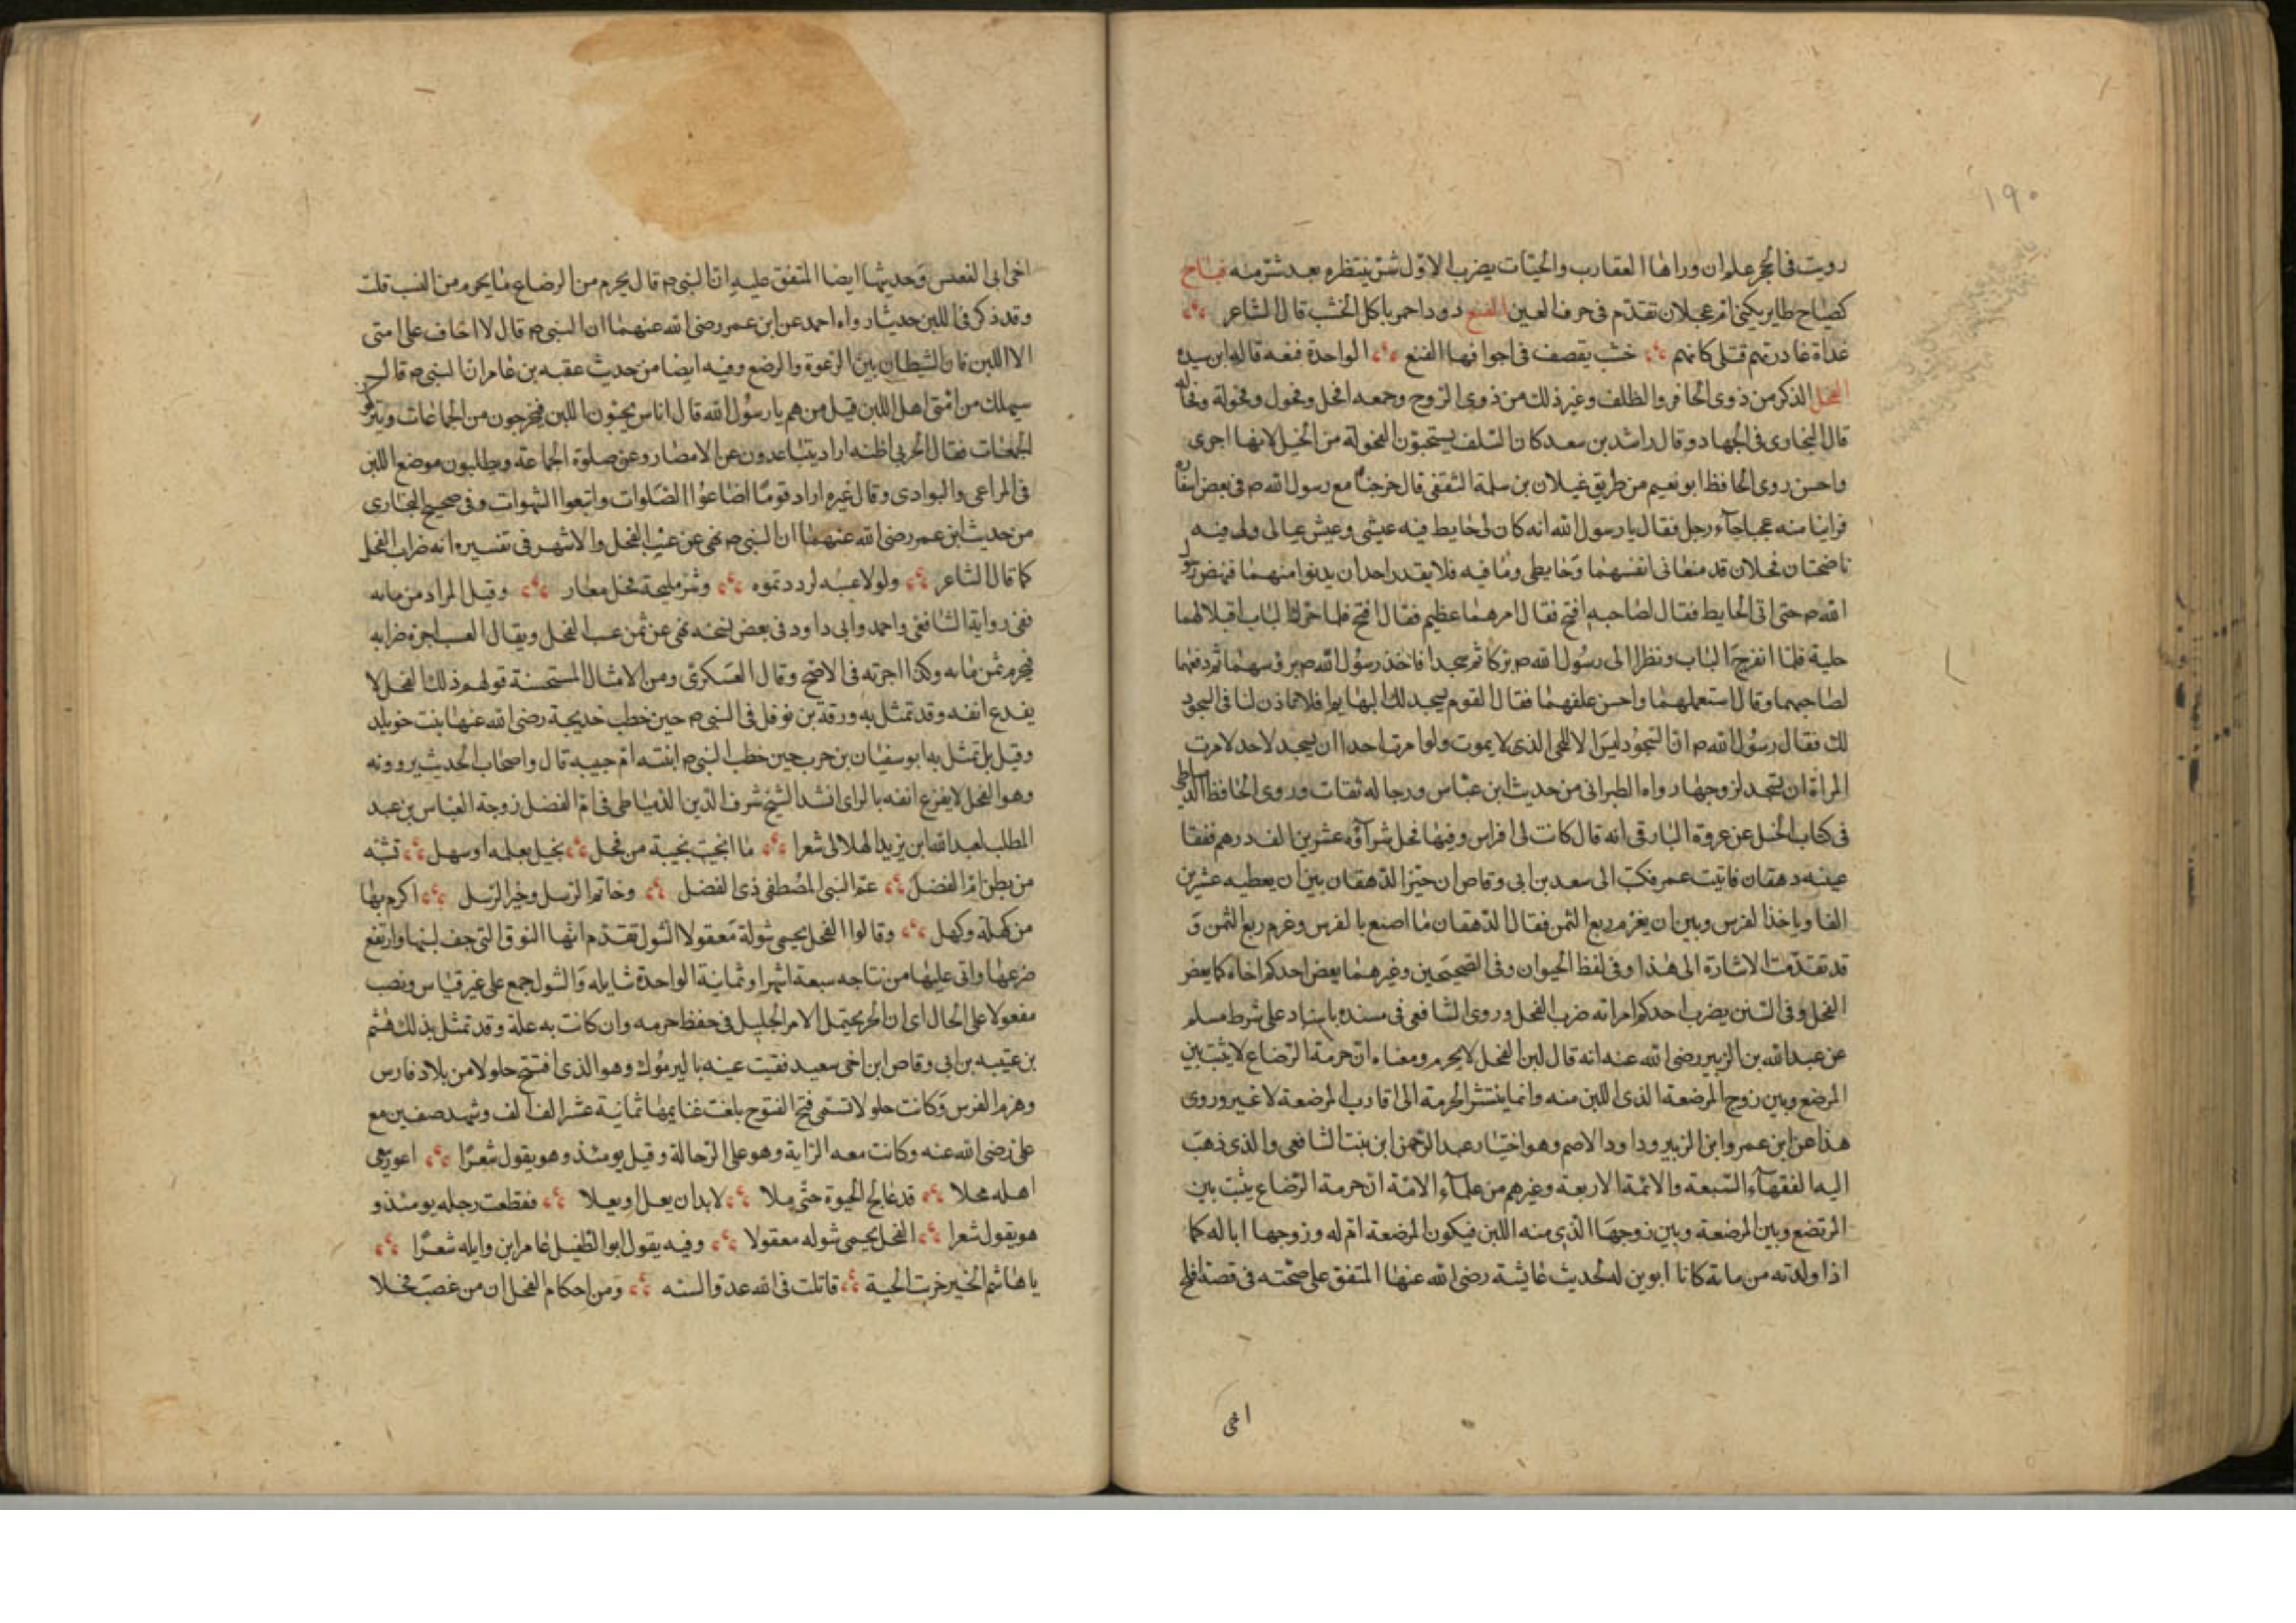 ١٩٠
رويت في الحجر علوان وراها العقارب والحيات يضرب الاول شر ينتظره بعد شر منه فتاح
كصياح طاير يكنى ام عجلان تقدم في حرف العين الفنع دود احمر ياكل الخشب قال الشاعر
غداة غادرتهم قتلى كانهم خشب يقصف في اجوافها الفنع الواحدة فنعه قاله ابن سيده
الفحل الذكر من ذوى الحافر والظلف وغير ذلك من ذوى الروح وجمعه افحل وفحول وفحولة وفحاله
قال البخارى في الجهاد وقال راشد بن سعد كان السلف يستحبون الفحولة من الخيل لانها اجرى
واحسن روى الحافظ ابو نعيم من طريق غيلان بن سلمة الثقفى قال خرجنا مع رسول الله ص في بعض اسفاره
فراينا منه عجبا جاء رجل فقال يا رسول الله انه كان لى حايط فيه عيشى وعيش عيالى ولى فيه
ناضحتان فحلان قد منعانى انفسهما وحايطى وما فيه فلا يقدر احد ان يدنوا منهما فنهض رسول
الله ص حتى اتى الحايط فقال لصاحبه افتح فقال امرهما عظيم فقال افتح فلما حرك الباب اقبلا لهما
جلبة فلما انفرج الباب ونظرا الى رسول الله ص بركا ثم سجدا فاخذ رسول الله ص برؤسهما ثم دفعهما
لصاحبهما وقال استعملهما واحسن علفهما فقال القوم يسجد لك البهايم افلا تاذن لنا في السجود
لك فقال رسول الله ص ان السجود ليس الا للحى الذى لا يموت ولو امرت احدا ان يسجد لاحد لامرت
المراة ان تسجد لزوجها رواه الطبرانى من حديث ابن عباس ورجاله ثقات وروى الحافظ الدمياطى
في كتاب الخيل عن عروة البارقى انه قال كانت لى افراس وفيها فحل شراؤه عشرين الف درهم ففقا
عينه دهقان فاتيت عمر فكتب الى سعد بن ابى وقاص ان خير الدهقان بين ان يعطيه عشرين
الفا وياخذ الفرس وبين ان يغرم ربع الثمن فقال الدهقان ما اصنع بالفرس وغرم ربع الثمن و
قد تقدمت الاشارة الى هذا وفي لفظ الحيوان وفي الصحيحين وغيرهما يعض احدكم اخاه كما يعض
الفحل وفي السنن يضرب احدكم امراته ضرب الفحل وروى الشافعى في مسنده باسناد على شرط مسلم
عن عبد الله بن الزبير رضى الله عنه انه قال لبن الفحل لا يحرم ومعناه ان حرمة الرضاع لا يثبت بين
المرضع وبين زوج المرضعة الذى اللبن منه وانما ينتشر الحرمة الى اقارب المرضعة لا غير وروى
هذا عن ابن عمر وابن الزبير وداود الاصم وهو اختيار عبد الرحمن ابن بنت الشافعى والذى ذهب
اليه الفقهاء السبعة والائمة الاربعة وغيرهم من علماء الامة ان حرمة الرضاع يثبت بين
المرتضع وبين المرضعة وبين زوجها الذى منه اللبن فيكون المرضعة ام له وزوجها ابا له كما
اذا ولدته من مائه كانا ابوين له لحديث عائشة رضى الله عنها المتفق على صحته في قصة افلح
اخى
اخى ابى القعيس وحديثها ايضا المتفق عليه ان النبى ص قال يحرم من الرضاع ما يحرم من النسب قلت
وقد ذكر في اللبن حديثا رواه احمد عن ابن عمر رضى الله عنهما ان النبى ص قال لا اخاف على امتى
الا اللبن فان الشيطان بين الرغوة والرضع وفيه ايضا من حديث عقبه بن عامر ان النبى ص قال
سيهلك من امتى اهل اللبن قيل من هم يا رسول الله قال اناس يحبون اللبن فيخرجون من الجماعات ويتركون
الجمعات فقال الحربى اظنه اراد يتباعدون عن الامصار وعن صلوة الجماعة ويطلبون موضع اللبن
في المراعى والبوادى وقال غيره اراد قوما اضاعوا الصلوات واتبعوا الشهوات وفي صحيح البخارى
من حديث ابن عمر رضى الله عنهما ان النبى ص نهى عن عسب الفحل والاشهر في تفسيره انه ضراب الفحل
كما قال الشاعر ولولا عسبه لرددتموه وشر منيحة فحل معار وقيل المراد من مائه
ففى رواية الشافعى واحمد وابى داود في بعض نسخه نهى عن ثمن عسب الفحل ويقال العسب اجرة ضرابه
فيحرم ثمن مائه وكذا اجرته في الاصح وقال العسكرى ومن الامثال المستحسنة قولهم ذلك الفحل لا
يقدع انفه وقد تمثل به ورقة بن نوفل في النبى ص حين خطب خديجة رضى الله عنها بنت خويلد
وقيل بل تمثل به ابو سفيان بن حرب حين خطب النبى ص ابنته ام حبيبه قال واصحاب الحديث يروونه
وهو الفحل لا يقرع انفه بالراى انشد الشيخ شرف الدين الدمياطى في ام الفضل زوجة العباس بن عبد
المطلب لعبد الله ابن يزيد الهلالى شعرا ما انجبت نجيبة من فحل بجبل يعلمه او سهل تشبه
من بطن ام الفضل عم النبى المصطفى ذى الفضل وخاتم الرسل وخير الرسل اكرم بها
من كهلة وكهل وقالوا الفحل يحمى شولة معقولا الشول تقدم انها النوق التى جف لبنها وارتفع
ضرعها واتى عليها من نتاجه سبعة اشهر او ثمانية الواحدة شايله والشول جمع على غير قياس ونصب
معقولا على الحال اى ان الحر يحتمل الامر الجليل في حفظ حرمه وان كانت به علة وقد تمثل بذلك هشم
بن عتيبه بن ابى وقاص ابن اخى سعيد ففقيت عينه باليرموك وهو الذى افتتح جلولا من بلاد فارس
وهزم الفرس وكانت جلولا تسمى فتح الفتوح بلغت غنايمها ثمانية عشر الف الف وشهد صفين مع
على رضى الله عنه وكانت معه الراية وهو على الرجالة وقيل يومئذ وهو يقول شعرا اعور يبغى
اهله محلا قد عالج الحيوة حتى ملا لا بد ان يعل او يعلا فقطعت رجله يومئذ و
هو يقول شعرا الفحل يحمى شوله معقولا وفيه يقول ابو الطفيل عامر ابن وايله شعرا
يا هاشم الخير خربت الحية قاتلت في الله عدو السنه ومن احكام الفحل ان من غصب فحلا